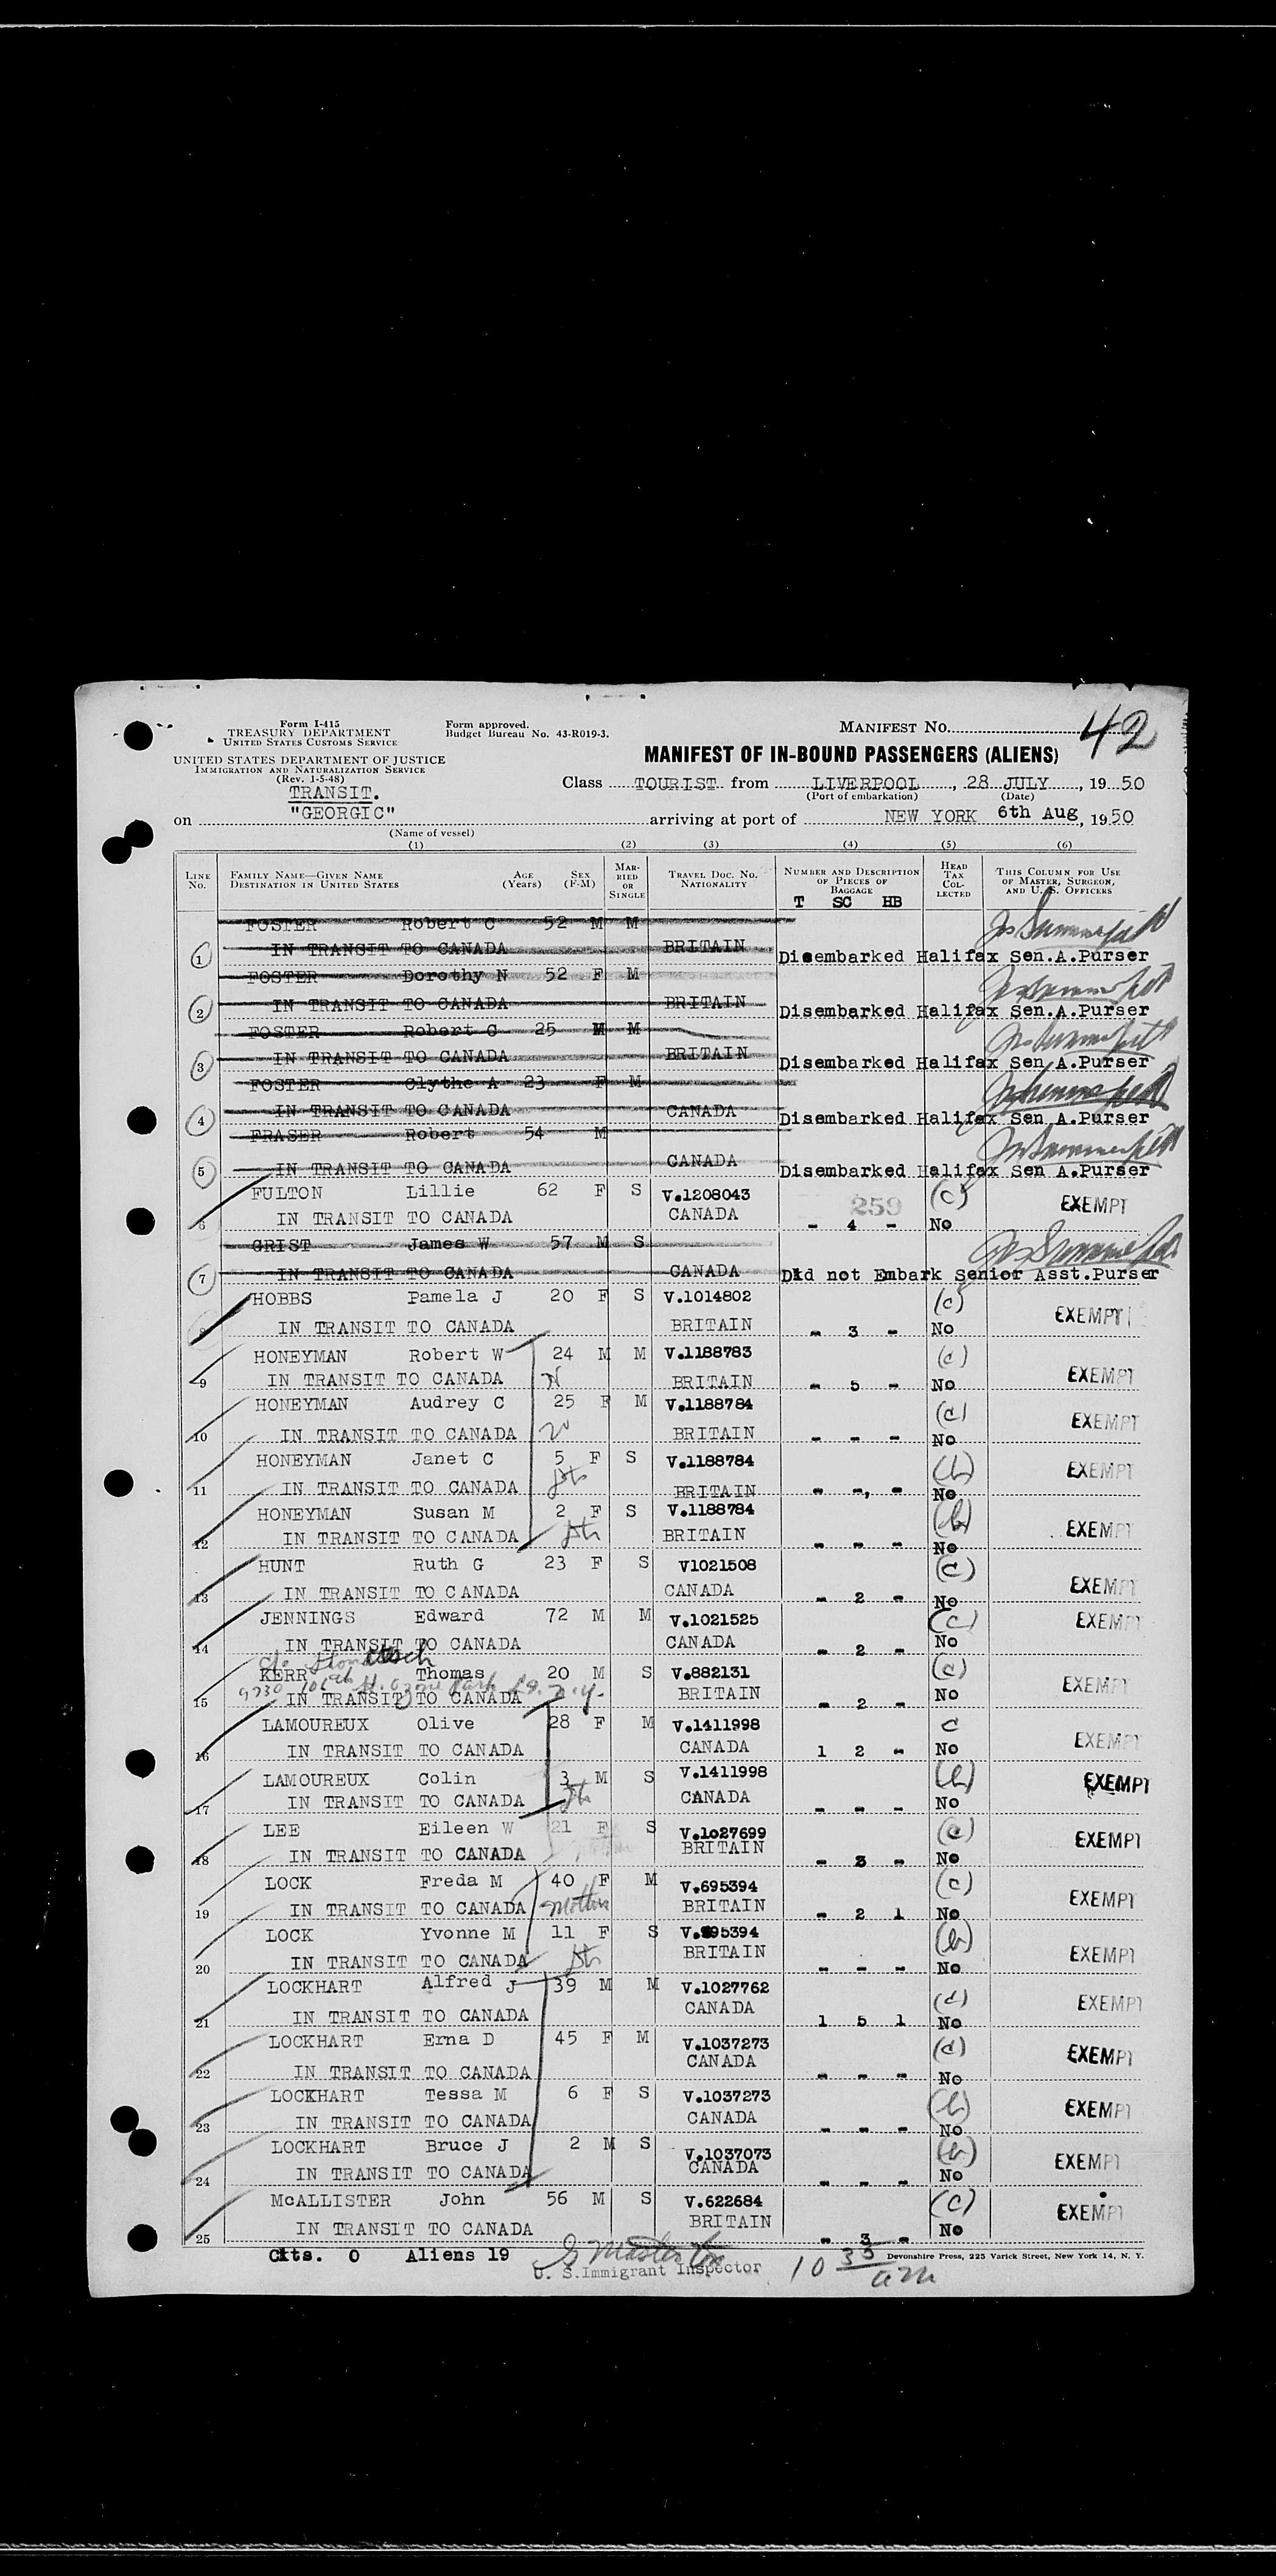 Form I-415
TREASURY DEPARTMENT
UNITED STATES CUSTOMS SERVICE
Form approved.
Budget Bureau No. 43-R019-3.
MANIFEST NO. 42
UNITED STATES DEPARTMENT OF JUSTICE
IMMIGRATION AND NATURALIZATION SERVICE
(Rev. 1-5-48)
MANIFEST OF IN-BOUND PASSENGERS (ALIENS)
TRANSIT.
Class TOURIST from LIVERPOOL, 28 JULY, 1950
(Port of embarkation) (Date)
on "GEORGIC" arriving at port of NEW YORK 6th Aug, 1950
(Name of vessel)
(1) (2) (3) (4) (5) (6)
LINE NO. FAMILY NAME—GIVEN NAME DESTINATION IN UNITED STATES AGE (Years) SEX (F-M) MARRIED OR SINGLE TRAVEL DOC. NO. NATIONALITY NUMBER AND DESCRIPTION OF PIECES OF BAGGAGE HEAD TAX COLLECTED THIS COLUMN FOR USE OF MASTER, SURGEON, AND U. S. OFFICERS
T SC HB
FOSTER Robert C 52 M M
1 IN TRANSIT TO CANADA BRITAIN Disembarked Halifax Sen.A.Purser
FOSTER Dorothy N 52 F M
2 IN TRANSIT TO CANADA BRITAIN Disembarked Halifax Sen.A.Purser
FOSTER Robert C 25 M M
3 IN TRANSIT TO CANADA BRITAIN Disembarked Halifax Sen A.Purser
FOSTER Clythe A 23 F M
4 IN TRANSIT TO CANADA CANADA Disembarked Halifax Sen A.Purser
FRASER Robert 54 M
5 IN TRANSIT TO CANADA CANADA Disembarked Halifax Sen A.Purser
FULTON Lillie 62 F S V.1208043 259 (c) EXEMPT
6 IN TRANSIT TO CANADA CANADA - 4 - No
GRIST James W 57 M S
7 IN TRANSIT TO CANADA CANADA Did not Embark Senior Asst.Purser
HOBBS Pamela J 20 F S V.1014802 (c) EXEMPT
8 IN TRANSIT TO CANADA BRITAIN - 3 - No
HONEYMAN Robert W 24 M M V.1188783 (c) EXEMPT
9 IN TRANSIT TO CANADA H BRITAIN - 5 - No
HONEYMAN Audrey C 25 F M V.1188784 (c) EXEMPT
10 IN TRANSIT TO CANADA W BRITAIN - - - No
HONEYMAN Janet C 5 F S V.1188784 (b) EXEMPT
11 IN TRANSIT TO CANADA BRITAIN - - - No
HONEYMAN Susan M 2 F S V.1188784 (b) EXEMPT
12 IN TRANSIT TO CANADA BRITAIN - - - No
HUNT Ruth G 23 F S V1021508 (c) EXEMPT
13 IN TRANSIT TO CANADA CANADA - 2 - No
JENNINGS Edward 72 M M V.1021525 (c) EXEMPT
14 IN TRANSIT TO CANADA CANADA - 2 - No
c/o
KERR Thomas 20 M S V.882131 (c) EXEMPT
9730 106th St. Ozone Park L.I. N.Y.
15 IN TRANSIT TO CANADA BRITAIN - 2 - No
LAMOUREUX Olive 28 F M V.1411998 c EXEMPT
16 IN TRANSIT TO CANADA CANADA 1 2 - No
LAMOUREUX Colin 3 M S V.1411998 (b) EXEMPT
17 IN TRANSIT TO CANADA CANADA - - - No
LEE Eileen W 21 F S V.1027699 (c) EXEMPT
18 IN TRANSIT TO CANADA BRITAIN - 3 - No
LOCK Freda M 40 F M V.695394 (c) EXEMPT
19 IN TRANSIT TO CANADA Mother BRITAIN - 2 1 No
LOCK Yvonne M 11 F S V.695394 (b) EXEMPT
20 IN TRANSIT TO CANADA BRITAIN - - - No
LOCKHART Alfred J 39 M M V.1027762 (c) EXEMPT
21 IN TRANSIT TO CANADA CANADA 1 5 1 No
LOCKHART Erna D 45 F M V.1037273 (c) EXEMPT
22 IN TRANSIT TO CANADA CANADA - - - No
LOCKHART Tessa M 6 F S V.1037273 (b) EXEMPT
23 IN TRANSIT TO CANADA CANADA - - - No
LOCKHART Bruce J 2 M S V.1037073 (b) EXEMPT
24 IN TRANSIT TO CANADA CANADA - - - No
McALLISTER John 56 M S V.622684 (c) EXEMPT
25 IN TRANSIT TO CANADA BRITAIN - 3 - No
Cits. 0 Aliens 19
U. S.Immigrant Inspector 10 35 am
Devonshire Press, 225 Varick Street, New York 14, N. Y.